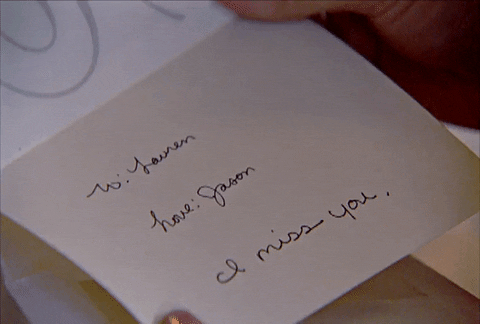 to: Lauren
Love: Jason
I miss you.